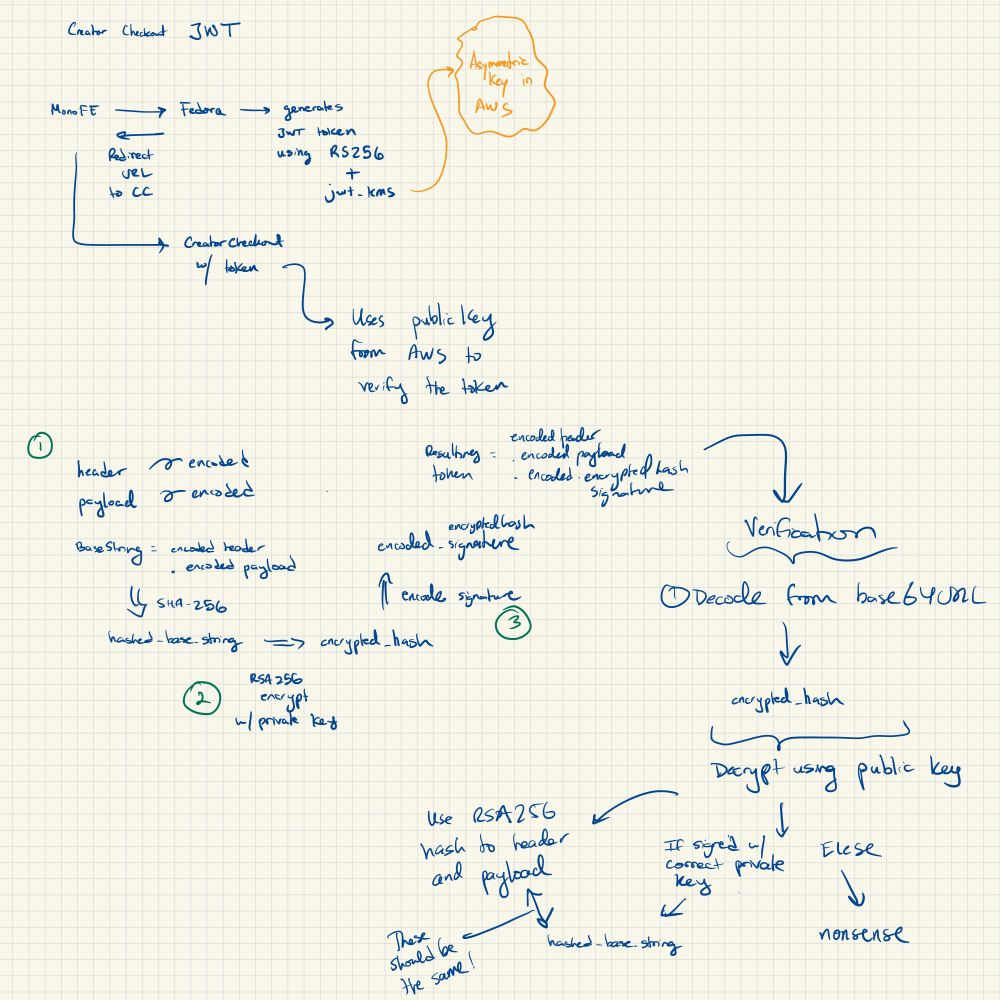 Creator Checkout JWT
Asymmetric
Key in
AWS
MonoFE
Fedora
generates
JWT token
using RS256
+
jwt_kms
Redirect
URL
to CC
CreatorCheckout
w/ token
Uses public key
from AWS to
verify the token
1
header encoded
payload encoded
BaseString = encoded header
. encoded payload
SHA-256
hashed_base_string
encrypted_hash
2
RSA256
encrypt
w/ private key
3
encode signature
encrypted hash
encoded_signature
Resulting =
token
encoded header
. encoded payload
. encoded encrypted hash
signature
Verification
1 Decode from base64URL
encrypted_hash
Decrypt using public key
Use RSA256
hash to header
and payload
If signed w/
correct private
key
Elese
nonsense
hashed_base_string
These
should be
the same!